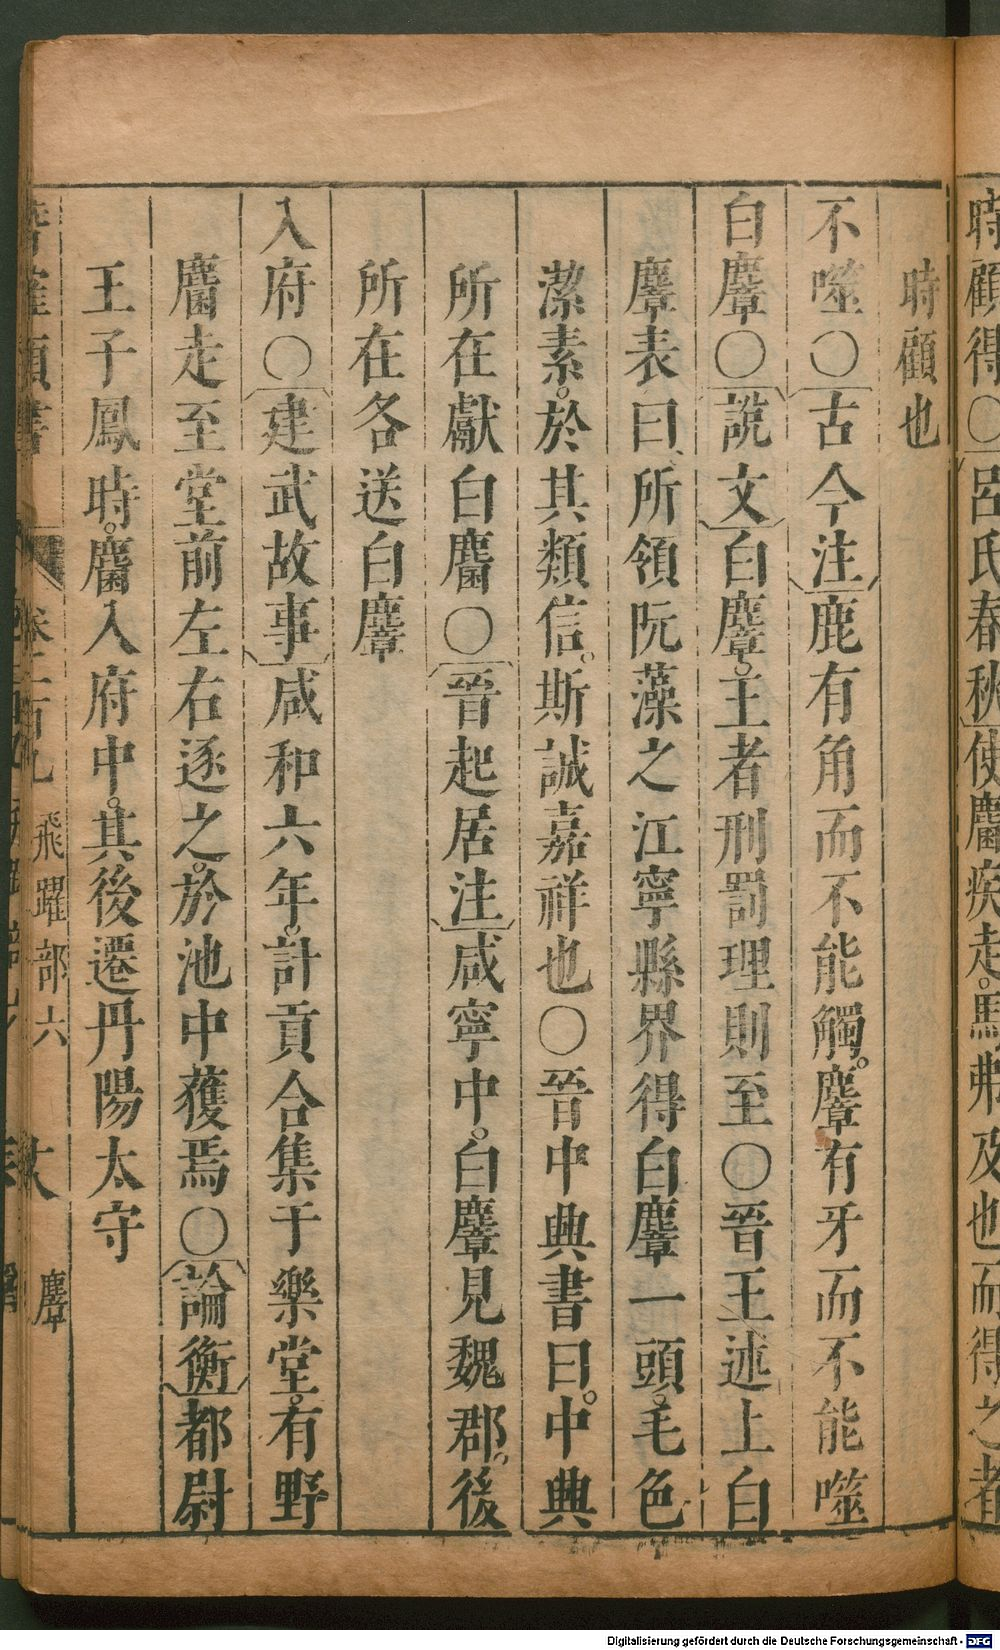 時顧得〇呂氏春秋使麕疾走。馬弗及也而得之者
時顧也
不噬〇古今注鹿有角而不能觸。麞有牙而不能噬
白麞〇說文白麞。王者刑罰理則至〇晉王述上白
麞表曰、所領阮藻之江寧縣界得白麞一頭。毛色
潔素。於其類信。斯誠嘉祥也〇晉中典書曰。中典
所在獻白麕〇晉起居注咸寧中。白麞見魏郡。後
所在各送白麞
入府〇建武故事咸和六年。計貢合集于樂堂。有野
麕走至堂前左右逐之。於池中獲焉〇論衡都尉
王子鳳時。麕入府中。其後遷丹陽太守
飛躍部六 麞
Digitalisierung gefördert durch die Deutsche Forschungsgemeinschaft - DFG